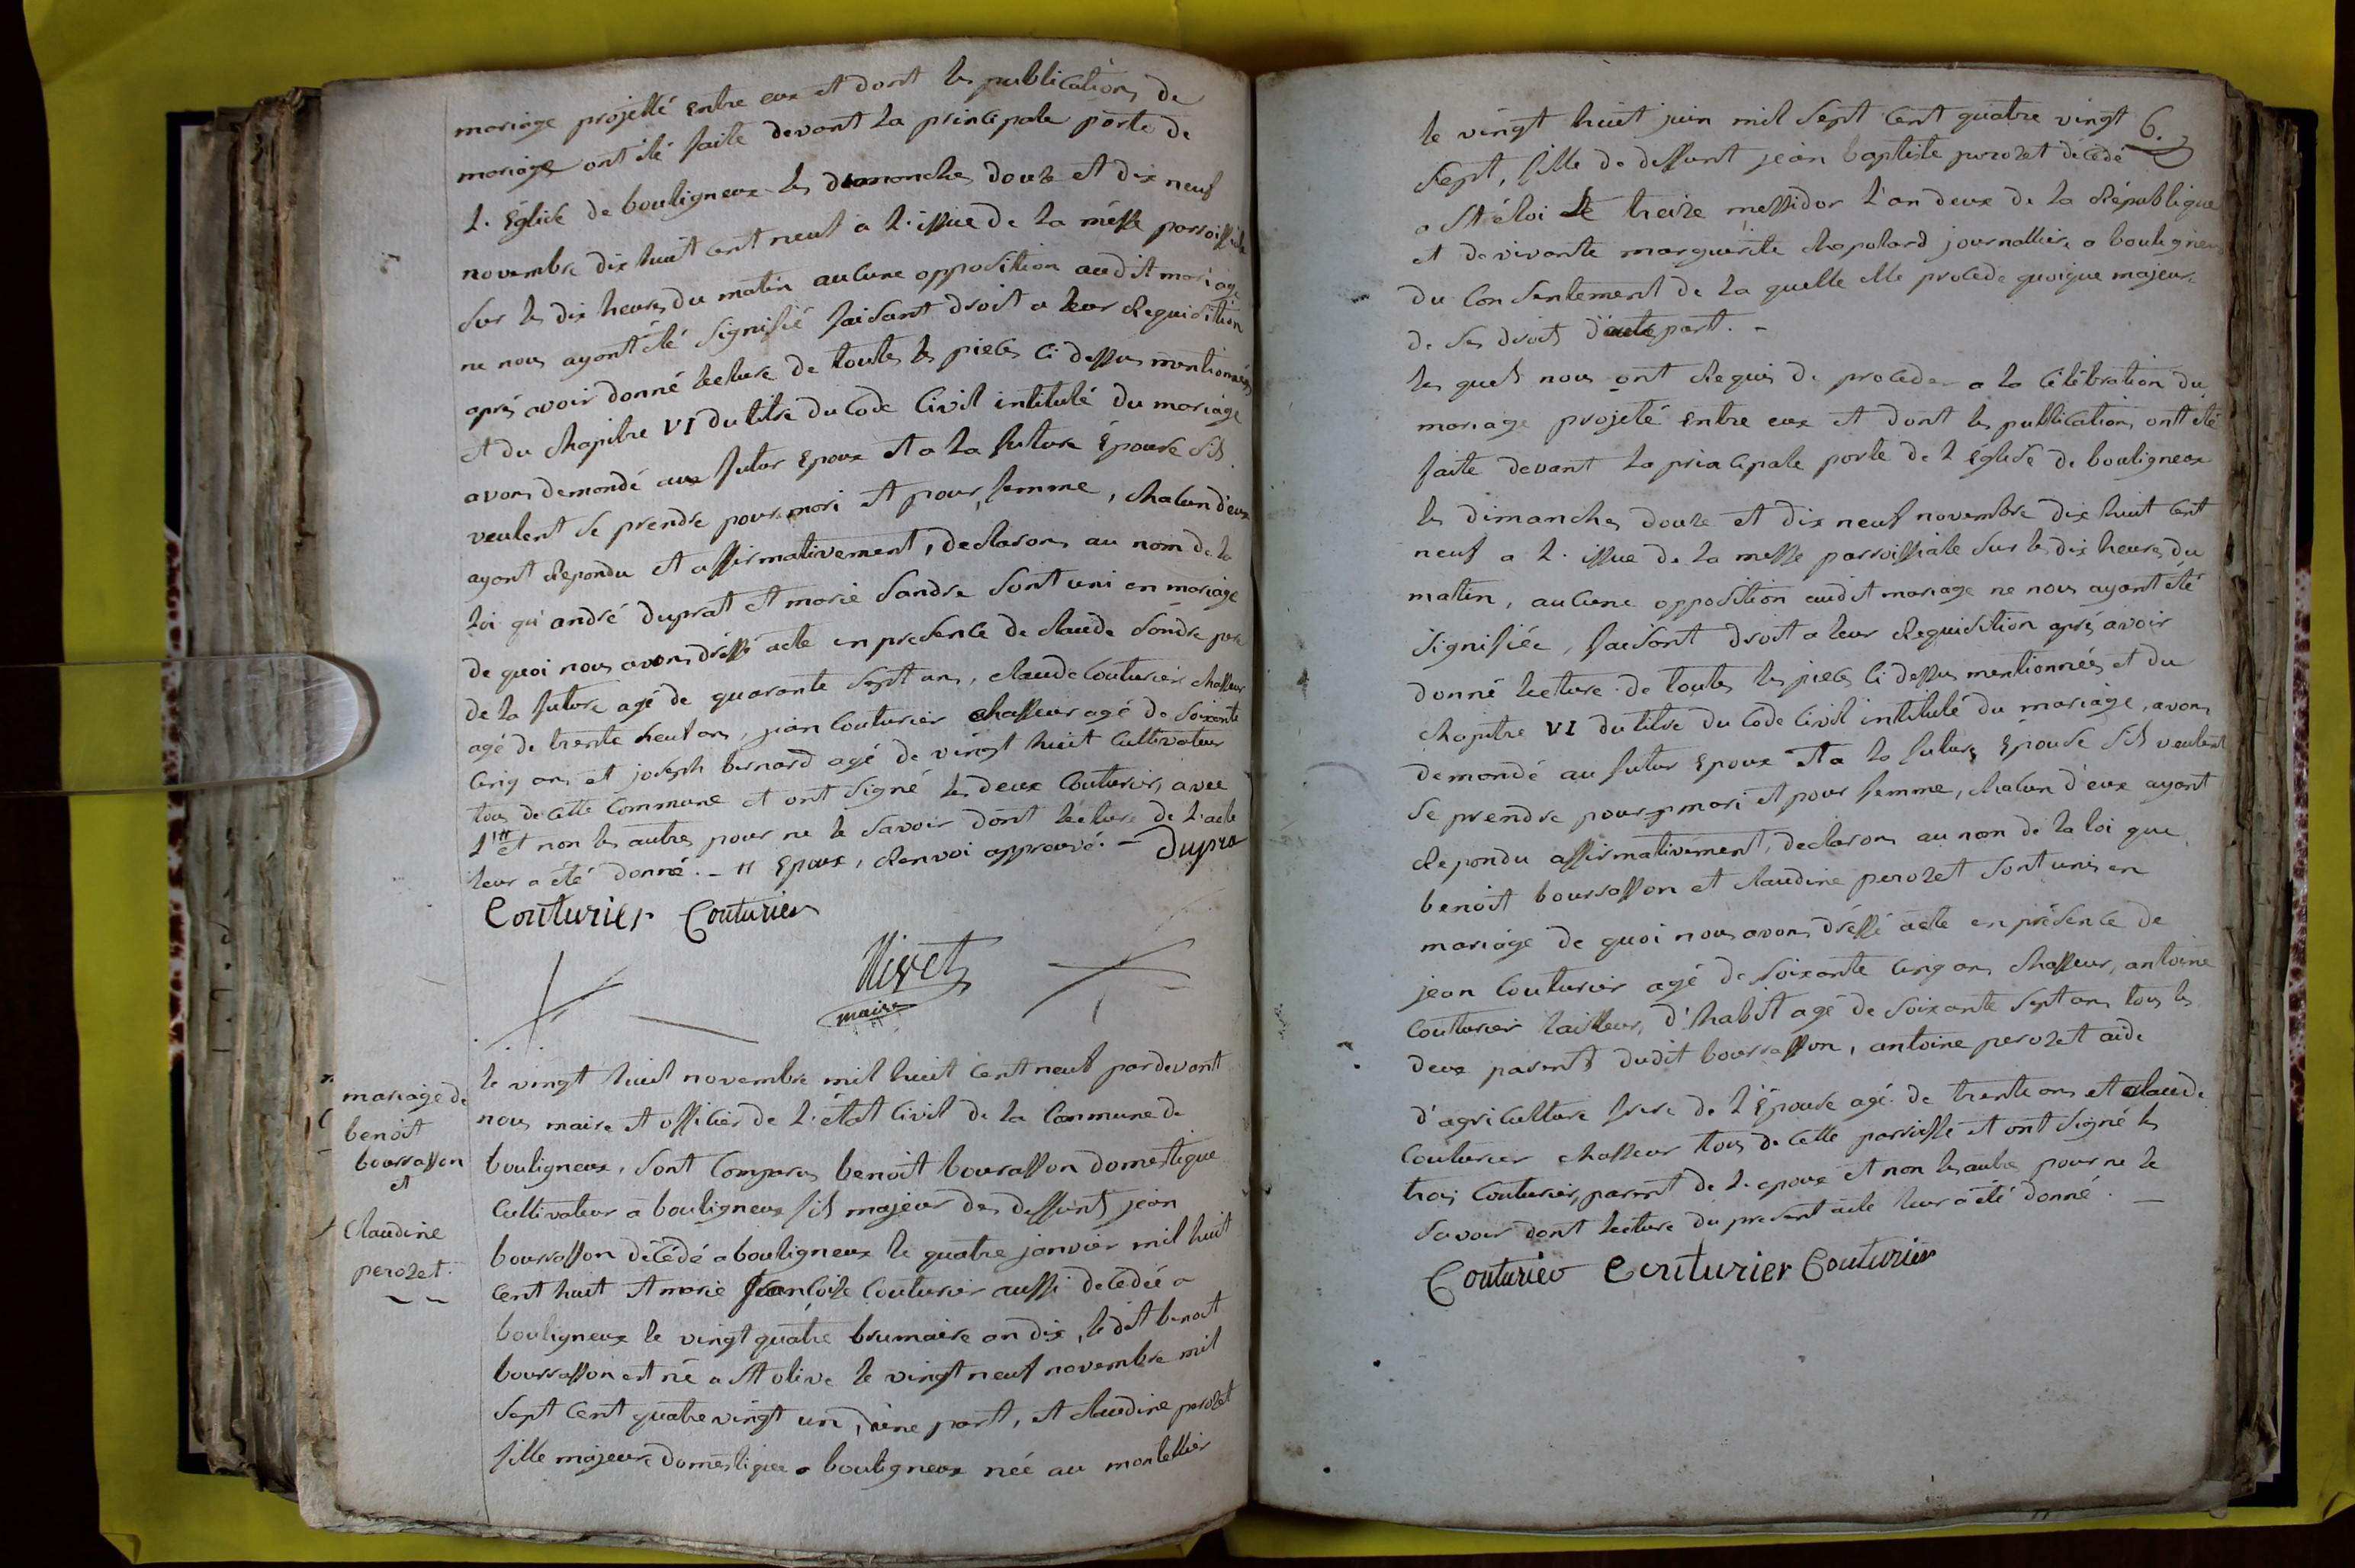 mariage projetté entre eux et dont les publications de
mariage ont été faite devant la principale porte de
l'église de bouligneux les dimanches douze et dix neuf
novembre dix huit cent neuf a l'issue de la messe parroissiale
sur les dix heures du matin aucune opposition audit mariage
ne nous ayant été signifié faisant droit a leur requisition
aprés avoir donné lecture de toutes les pieces ci dessus mentionnées
et du chapitre VI du titre du code civil intitulé du mariage
avons demandé aux futur epoux et a la future épouse s'ils
veulent se prendre pour mari et pour femme, chacun d'eux
ayant repondu et affirmativement, declarons au nom de la
loi qu'andré duprat et marie sandre sont uni en mariage
de quoi nous avons dréssé acte en presence de claude sandre pere
de la future agé de quarante sept ans, claude couturier chasseur
agé de trente neuf ans, jean couturier chasseur agé de soixante
cinq ans et joseph bernard agé de vingt huit cultivateur
tous de cette commune et ont signé les deux couturier, avec
l'# et non les autres pour ne le savoir dont lecture de l'acte
leur a été donné. - # epoux, renvoi approuvé. - Dupra
Couturier Couturier
Nivet
maire
mariage de
benoit
bourrasson
et
claudine
perozet.
le vingt huit novembre mil huit cent neuf pardevant
nous maire et officier de l'état civil de la commune de
bouligneux, sont comparus benoit bourrasson domestique
cultivateur a bouligneux fils majeur des deffunts jean
bourrasson décédé a bouligneux le quatre janvier mil huit
cent huit et marie francoise couturier aussi decédée a
bouligneux le vingt quatre brumaire an dix, le dit benoit
bourrasson est né a St olive le vingt neuf novembre mil
sept cent quatre vingt un, d'une part, et claudine perozet
fille majeure domestique a bouligneux née au montellier
6.
le vingt huit juin mil sept cent quatre vingt
sept, fille de deffunt jean baptiste perozet décédé
a St éloi le treize messidor l'an deux de la république
et de vivante marguerite chapolard journalliere a bouligneux
du consentement de la quelle elle procede quoique majeure
de ses droits d'autre part. -
les quels nous ont requis de proceder a la célébration du
mariage projeté entre eux et dont les publications ont été
faite devant la principale porte de l'église de bouligneux
les dimanches douze et dix neuf novembre dix huit cent
neuf a l'issue de la messe parroissiale sur les dix heures du
matin, aucune opposition audit mariage ne nous ayant été
signifiée, faisant droit a leur requisition aprés avoir
donné lecture de toutes les pieces ci dessus mentionnées et du
chapitre VI du titre du code civil intitulé du mariage, avons
demandé au futur epoux et a la future epouse s'ils veulent
se prendre pour mari et pour femme, chacun d'eux ayant
repondu affirmativement, declarons au nom de la loi que
benoit bourrasson et claudine perozet sont unis en
mariage de quoi nous avons dréssé acte en présence de
jean couturier agé de soixante cinq ans chasseur, antoine
couturier tailleur, d'habit agé de soixante sept ans tous les
deux parents dudit bourrasson, antoine perozet aide
d'agriculture frere de l'épouse agé de trente ans et claude
couturier chasseur tous de cette parroisse et ont signé les
trois couturier, parent de l'epoux et non les autres pour ne le
savoir dont lecture du present acte leur a été donné. -
Couturier Couturier Couturier